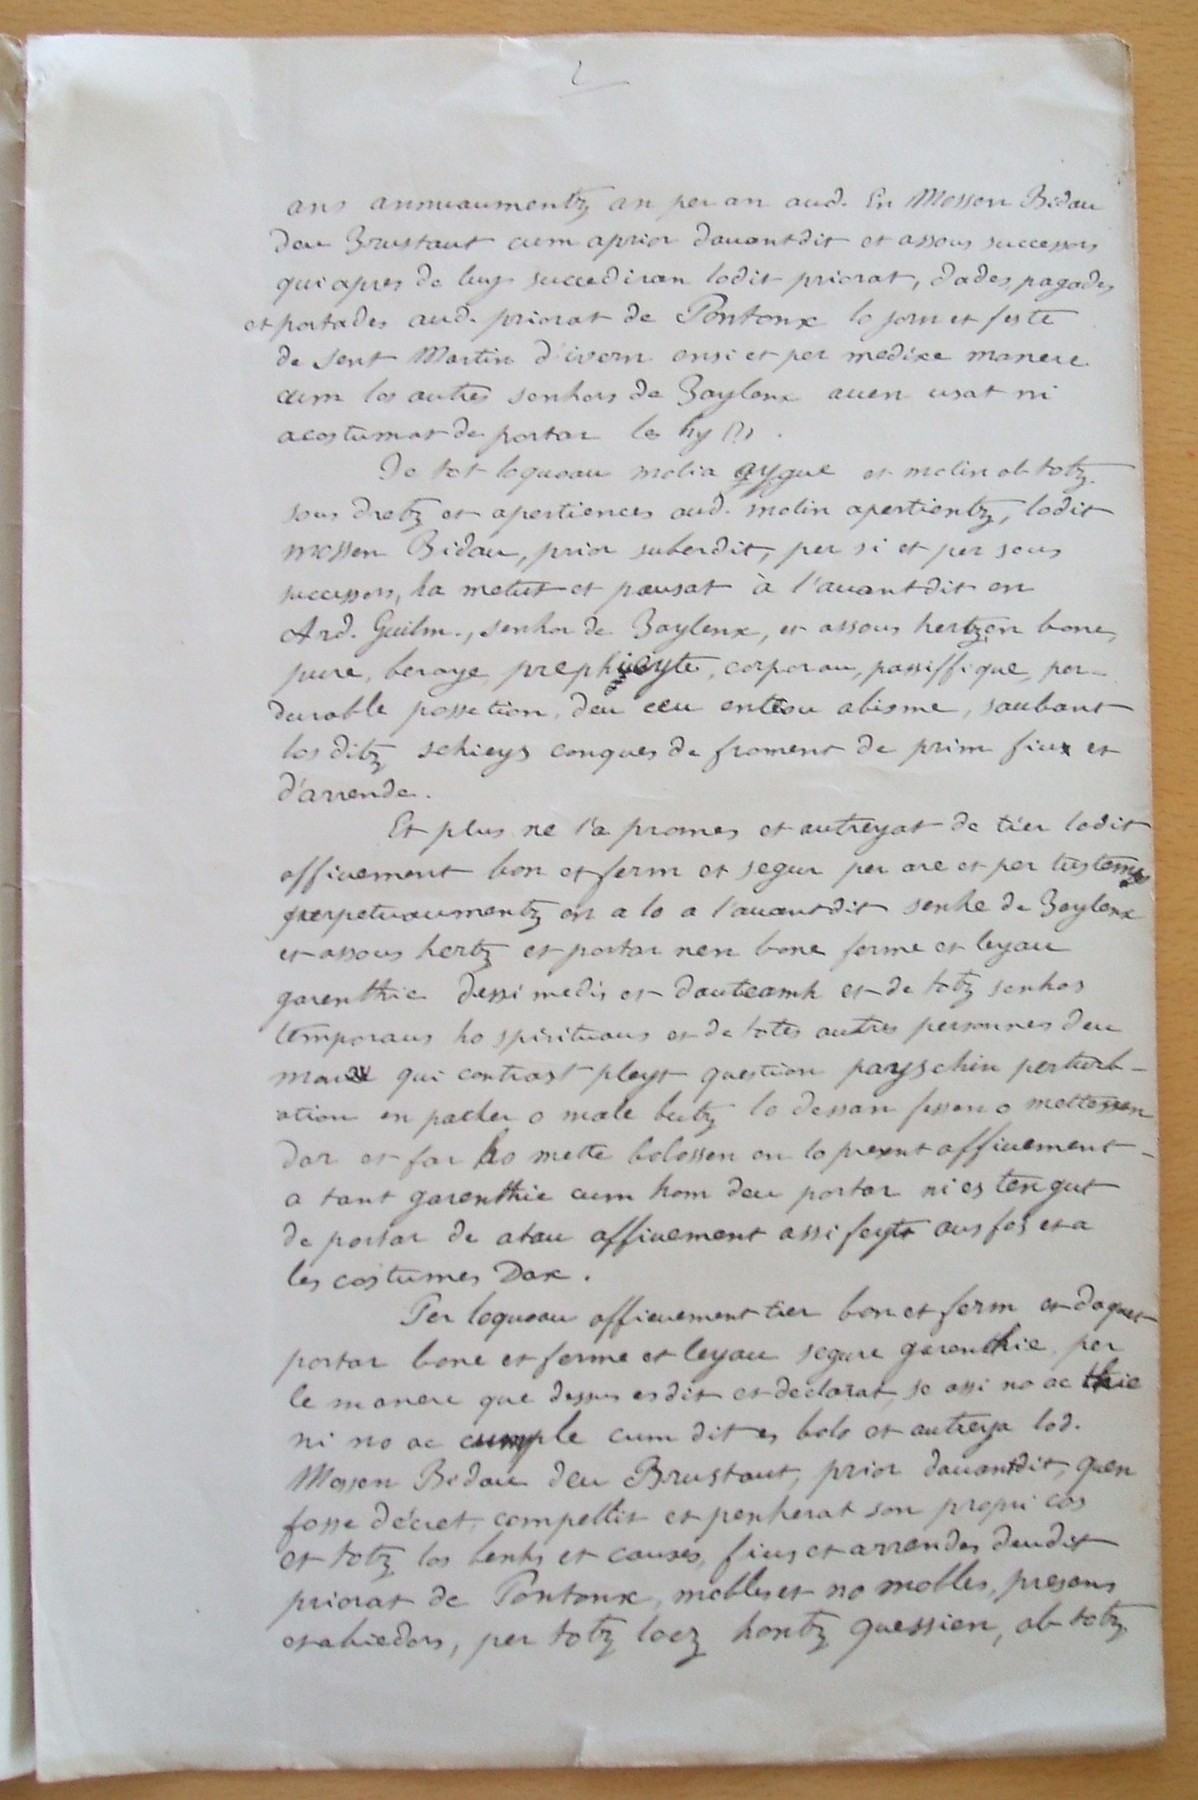 2
ans annuaumentz an per an aud. En Mossen Bidau
deu Brustaut cum a prior dauantdit et assous successors
qui apres de luy succediran lodit priorat, dades, pagades
et portades aud. priorat de Pontonx lo jorn et feste
de Sent Martin d'ivern ensi et per medixe manere
cum los autres senhors de Bayleux auen usat ni
acostumat de portar les hy (?).
De tot loquoau molia aygue et molin ob totz
sous dretz et apertiences aud. molin apertientz, lodit
mossen Bidau, prior suberdit, per si et per sous
successors, ha metut et pausat à l'auantdit en
Ard. Guilm., senhor de Baylenx, et assous hertz en bone,
pure, beraye, corporau, passiffique, per-
durable possetion, deu ceu entrou abisme, saubant
los ditz schieys conques de froment de prim fiux et
d'arrende.
Et plus ne l'a promes et autreyat de tier lodit
affiuement bon et ferm et segur per are et per tustemps
perpetuaumentz en a lo a l'auantdit senhe de Baylenx
et assous hertz et portar nen bone ferme et leyau
garenthie dessi medis et dauteamh et de totz senhos
temporaus ho spirituaus et de totes autres personnes deu
mon qui contrast pleyt question payschiu perturb-
ation en parlar o male butz lo dessan fessen o mettossen
dar et far ho mette bolossen en lo present affiuement -
a tant garenthie cum hom deu portar ni es tengut
de portar de atau affiuement assi feyt aus fos et a
les costumes Dax.
Per loquoau affieuement tier bon et ferm et daquet
portar bone et ferme et leyau segure garenthie per
le manere que dessus es dit et declarat, se assi no ac thie
ni no ac cumple cum dit es bolo et autreya lod.
Mossen Bidau deu Brustaut, prior dauantdit, quen
fosse décret, compellit et penherat son propri cos
et totz los benhs et causes, fius et arrendes deudit
priorat de Pontonx, mobles et no mobles, presens
et abiedors, per totz locz hontz quessien, ob totz